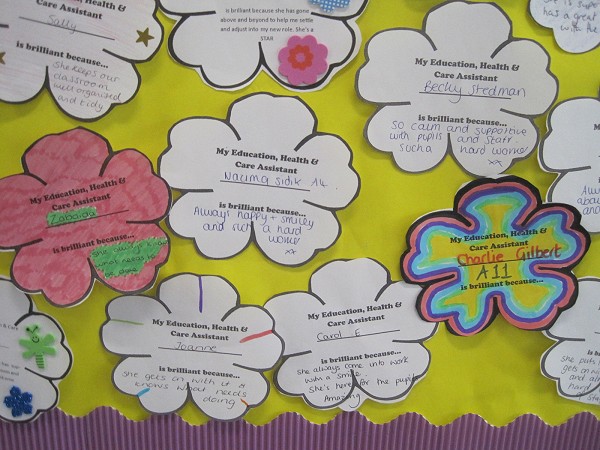 Care Assistant
Sally
is brilliant because...
She keeps our
classroom
well organised
and tidy
is brilliant because she has gone
above and beyond to help me settle
and adjust into my new role. She's a
STAR
My Education, Health &
Care Assistant
Becky Stedman
is brilliant because...
So calm and supportive
with pupils and staff
such a hard worker
xx
My Education, Health &
Care Assistant
Nacima Sidik A4
is brilliant because...
Always happy + smiley
and such a hard
worker
xx
My Education, Health &
Care Assistant
Zabaida
is brilliant because...
she
what needs to
be done
My Education, Health &
Care Assistant
Charlie Gilbert
A11
is brilliant because...
My Education, Health &
Care Assistant
Joanne
is brilliant because...
she gets on with it &
knows what needs
doing
My Education, Health &
Care Assistant
Carol E
is brilliant because...
she always come into work
with a smile.
she's here for the pupils
Amazing